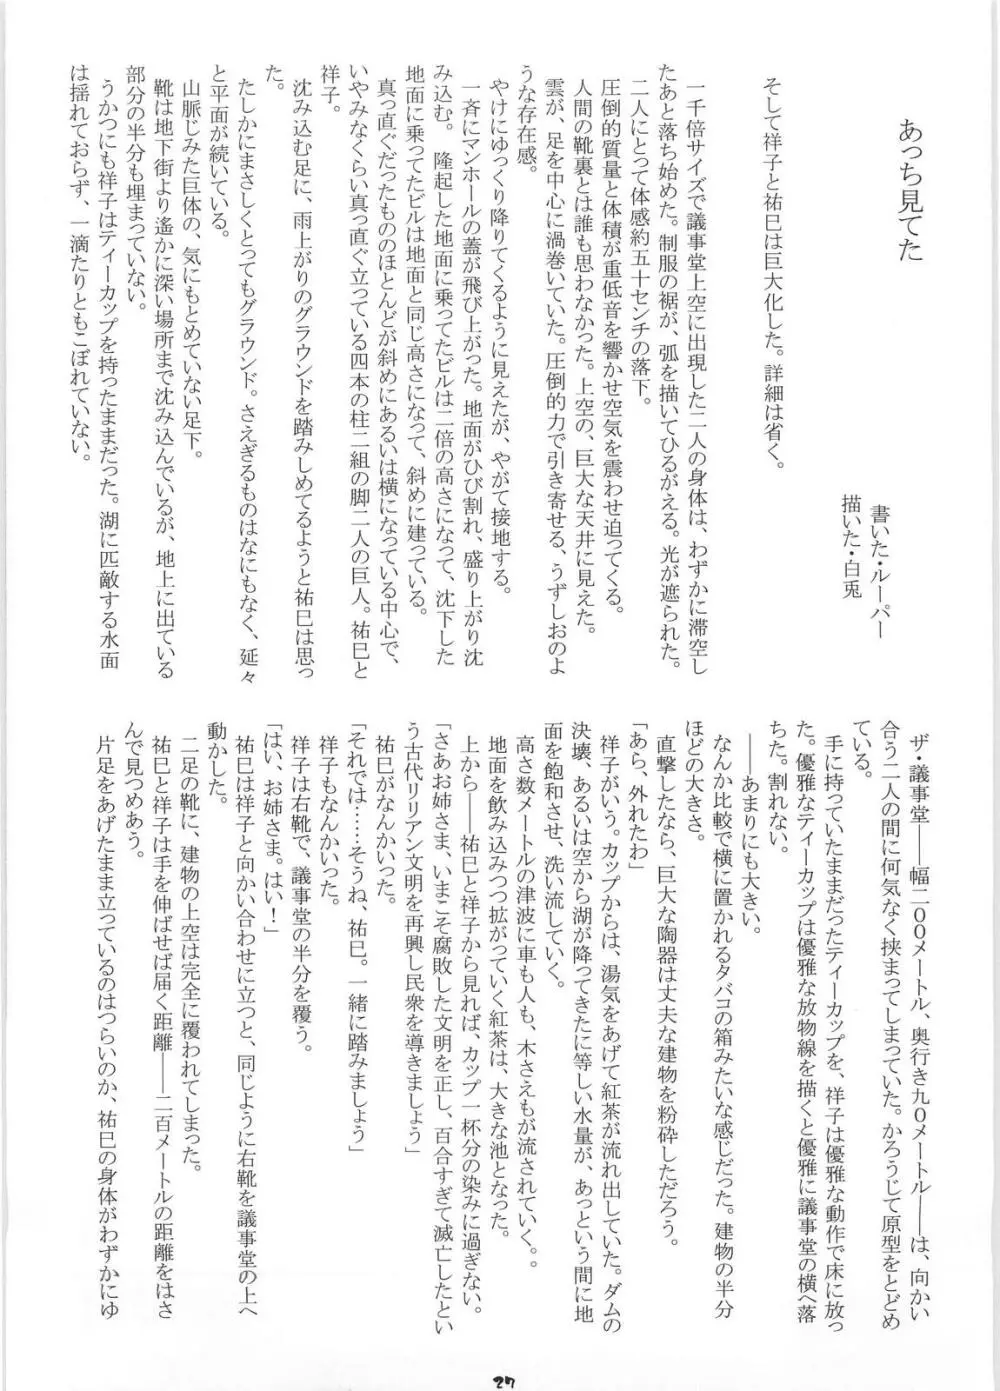 あっち見てた
書いた・ルーパー
描いた・白兎
そして祥子と祐巳は巨大化した。詳細は省く。
一千倍サイズで議事堂上空に出現した二人の身体は、わずかに滞空し
たあと落ち始めた。制服の裾が、弧を描いてひるがえる。光が遮られた。
二人にとって体感約五十センチの落下。
圧倒的質量と体積が重低音を響かせ空気を震わせ迫ってくる。
人間の靴裏とは誰も思わなかった。上空の、巨大な天井に見えた。
雲が、足を中心に渦巻いていた。圧倒的力で引き寄せる、うずしおのよ
うな存在感。
やけにゆっくり降りてくるように見えたが、やがて接地する。
一斉にマンホールの蓋が飛び上がった。地面がひび割れ、盛り上がり沈
み込む。隆起した地面に乗ってたビルは二倍の高さになって、沈下した
地面に乗ってたビルは地面と同じ高さになって、斜めに建っている。
真っ直ぐだったもののほとんどが斜めにあるいは横になっている中心で、
いやみなくらい真っ直ぐ立っている四本の柱二組の脚二人の巨人。祐巳と
祥子。
沈み込む足に、雨上がりのグラウンドを踏みしめてるようと祐巳は思っ
た。
たしかにまさしくとってもグラウンド。さえぎるものはなにもなく、延々
と平面が続いている。
山脈じみた巨体の、気にもとめていない足下。
靴は地下街より遙かに深い場所まで沈み込んでいるが、地上に出ている
部分の半分も埋まっていない。
うかつにも祥子はティーカップを持ったままだった。湖に匹敵する水面
は揺れておらず、一滴たりともこぼれていない。
ザ・議事堂――幅二〇〇メートル、奥行き九〇メートル――は、向かい
合う二人の間に何気なく挟まってしまっていた。かろうじて原型をとどめ
ている。
手に持っていたままだったティーカップを、祥子は優雅な動作で床に放っ
た。優雅なティーカップは優雅な放物線を描くと優雅に議事堂の横へ落
ちた。割れない。
――あまりにも大きい。
なんか比較で横に置かれるタバコの箱みたいな感じだった。建物の半分
ほどの大きさ。
直撃したなら、巨大な陶器は丈夫な建物を粉砕しただろう。
「あら、外れたわ」
祥子がいう。カップからは、湯気をあげて紅茶が流れ出していた。ダムの
決壊、あるいは空から湖が降ってきたに等しい水量が、あっという間に地
面を飽和させ、洗い流していく。
高さ数メートルの津波に車も人も、木さえもが流されていく。
地面を飲み込みつつ拡がっていく紅茶は、大きな池となった。
上から――祐巳と祥子から見れば、カップ一杯分の染みに過ぎない。
「さあお姉さま、いまこそ腐敗した文明を正し、百合すぎて滅亡したとい
う古代リリアン文明を再興し民衆を導きましょう」
祐巳がなんかいった。
「それでは……そうね、祐巳。一緒に踏みましょう」
祥子もなんかいった。
祥子は右靴で、議事堂の半分を覆う。
「はい、お姉さま。はい！」
祐巳は祥子と向かい合わせに立つと、同じように右靴を議事堂の上へ
動かした。
二足の靴に、建物の上空は完全に覆われてしまった。
祐巳と祥子は手を伸ばせば届く距離――二百メートルの距離をはさ
んで見つめあう。
片足をあげたまま立っているのはつらいのか、祐巳の身体がわずかにゆ
27